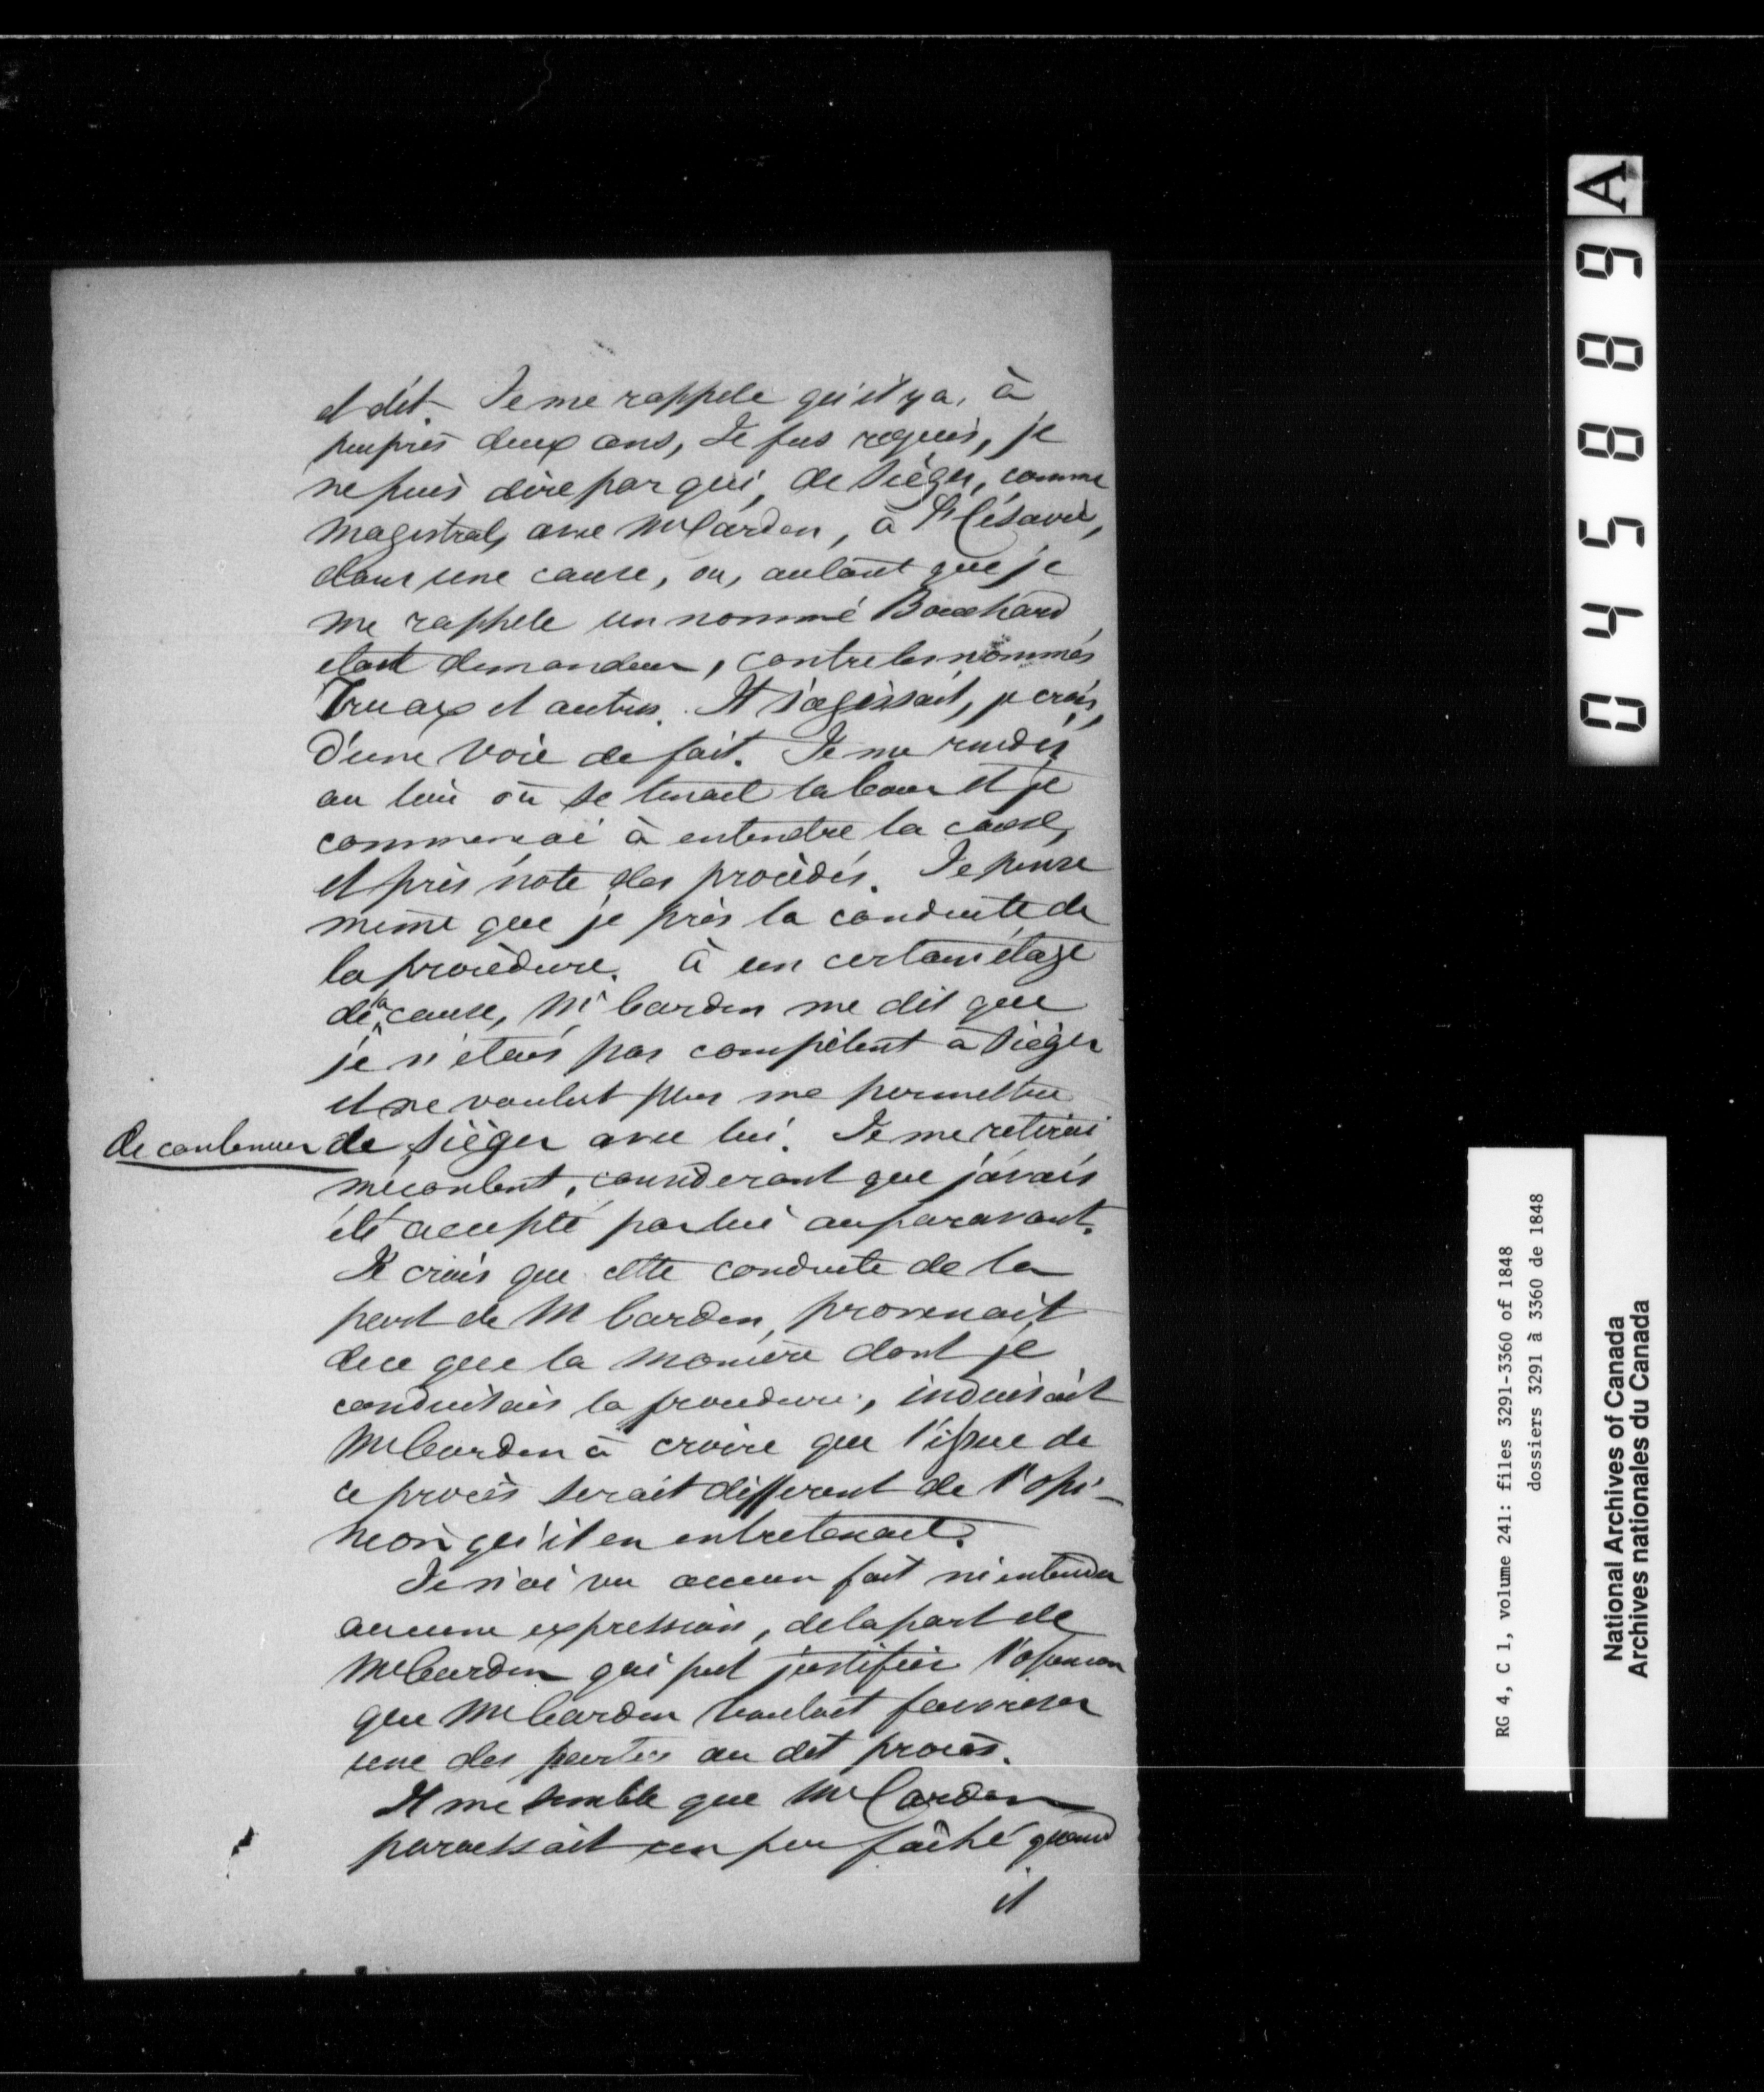 et dit. Je me rappele qu'il y a, à
peuprès deux ans, Je fus requis, je
ne puis dire par qui, de sièger, comme
magistrat, avec Mr Cardon, à St Césaire,
dans une cause, ou, autant que je
me rappele un nommé Bouchard
etait demandeur, contre les nommés
Truax et autres. Il s'agissait, je crois,
d'une voie de fait. Je me rendis
au lieu où se tenait la Cour et je
commencai à entendre la cause,
et pris note des procèdés. Je pense
meme que je pris la conduite de
la procèdure. à un certain étage
de la cause, Mr Carden me dit que
je n'étais pas compètent à sièger
et ne voulut plus me permettre
de continuer de sièger avec lui. Je me retirai
mécontent, considerant que j'avais
été accepté par lui auparavant.
Je crois que cette conduite de la
part de M Carden, provenait
de ce que la manière dont je
conduisais la procedure, induisait
Mr Carden à croire que l'issue de
ce procès serait different de l'opi-
nion qu'il en entretenait.
Je n'ai vu aucun fait ni entendu
aucune expression, de la part de
Mr Carden qui put justifier l'opinion
que Mr Carden voulait favoriser
une des parties au dit procès.
Il me semble que Mr Carden
paraissait un peu fâché quand
il
A
045889
RG 4, C 1, volume 241: files 3291-3360 of 1848
dossiers 3291 à 3360 de 1848
National Archives of Canada
Archives nationales du Canada